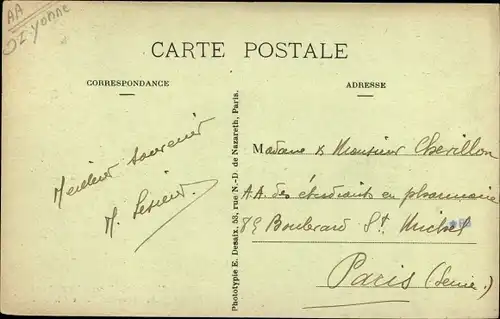 AA
Yonne
CARTE POSTALE
CORRESPONDANCE
ADRESSE
Meilleur souvenir
M.
Phototypie E. Desaix, 53, rue N.-D. de Nazareth, Paris.
Madame & Monsieur Cherillon
A.A. des étudiants en pharmacie
Boulevard St Michel
Paris (Seine.)